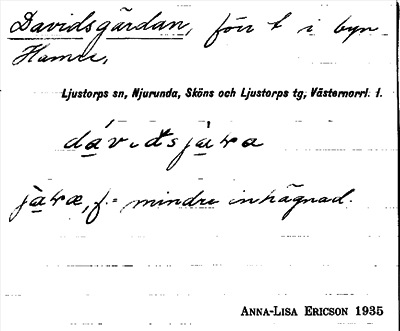 Davidsgärdan, förr t i byn
Hamre,
Ljustorps sn, Njurunda, Sköns och Ljustorps tg, Västernorrl. l.
jàɽæ, f. = mindre inhägnad.
ANNA-LISA ERICSON 1935